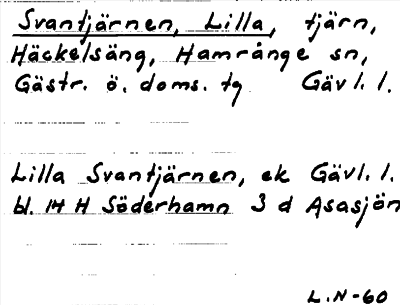 Svantjärnen, Lilla, tjärn,
Häckelsäng, Hamrånge sn,
Gästr. ö. doms. tg Gävl. l.
Lilla Svantjärnen, ek Gävl. l.
bl. 14 H Söderhamn 3 d Asasjön
L.N-60